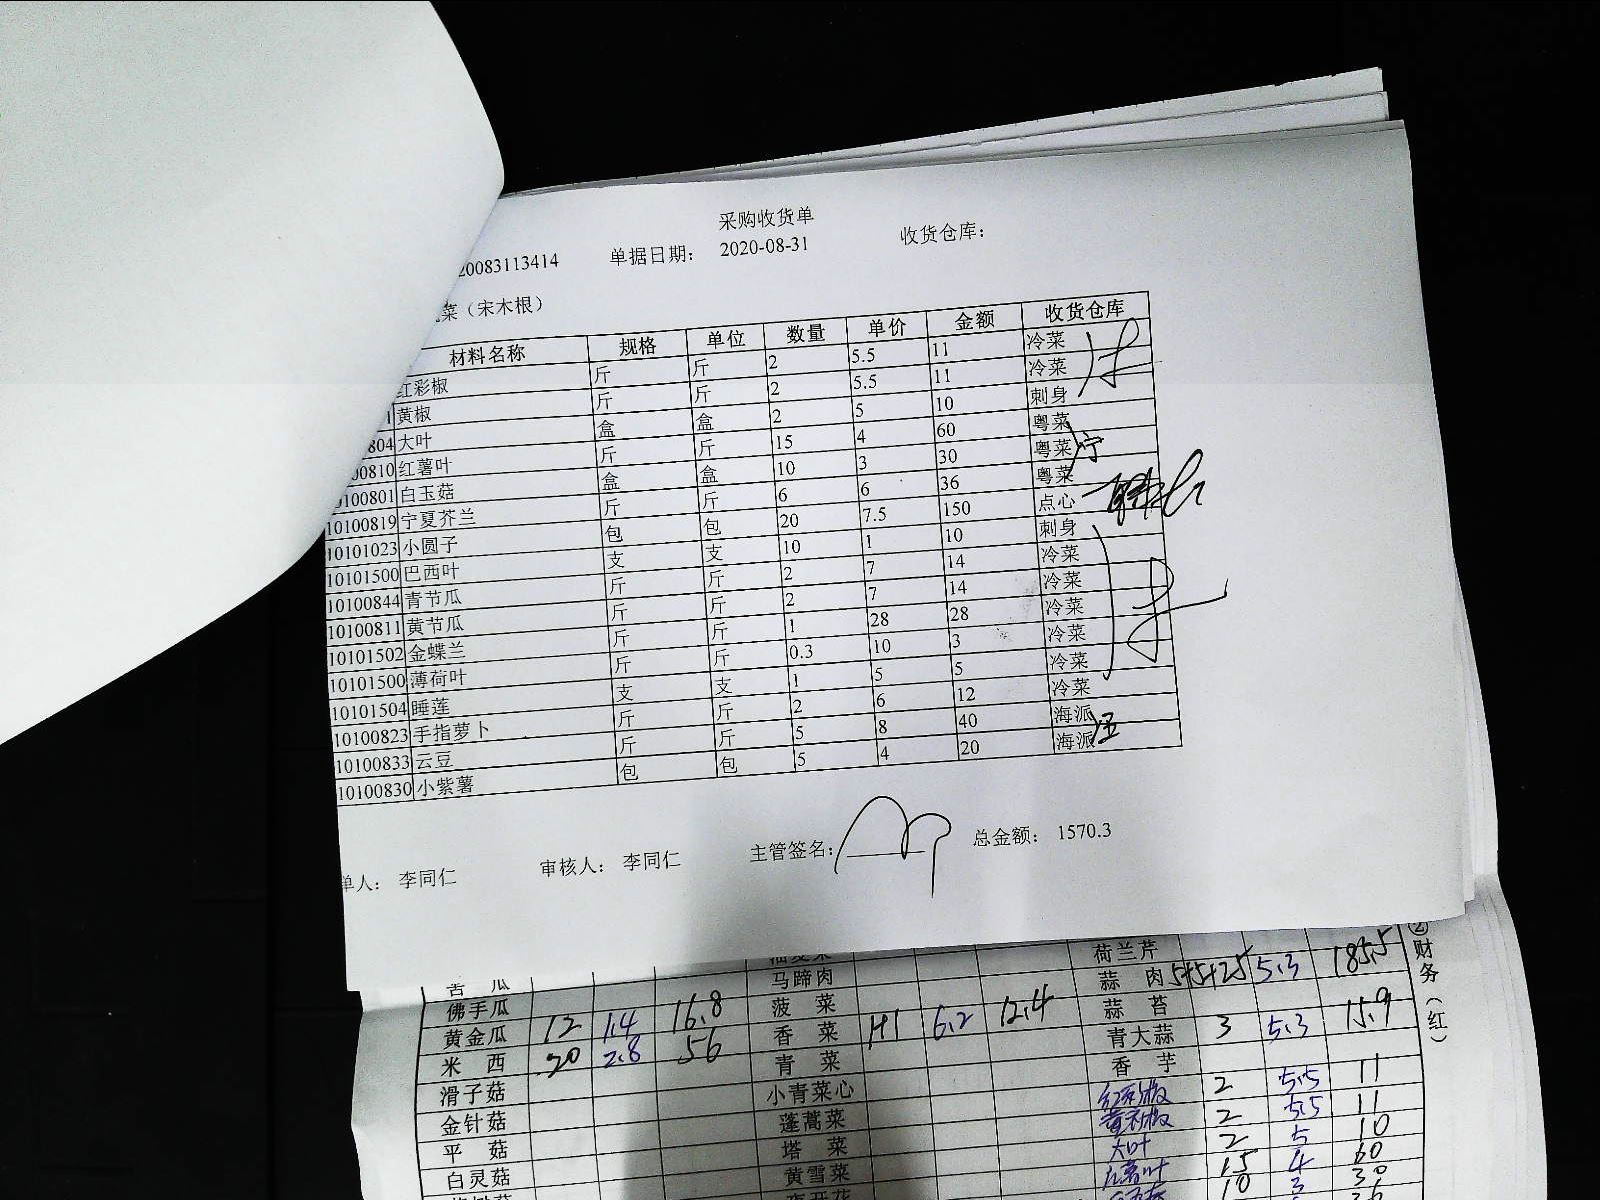 采购收货单
20083113414 单据日期： 2020-08-31 收货仓库：
菜（宋木根）
材料名称 规格 单位 数量 单价 金额 收货仓库
红彩椒 斤 斤 2 5.5 11 冷菜
1 黄椒 斤 斤 2 5.5 11 冷菜
804 大叶 盒 盒 2 5 10 刺身
00810 红薯叶 斤 斤 15 4 60 粤菜
0100801 白玉菇 盒 盒 10 3 30 粤菜 宁
10100819 宁夏芥兰 斤 斤 6 6 36 粤菜
10101023 小圆子 包 包 20 7.5 150 点心
10101500 巴西叶 支 支 10 1 10 刺身
10100844 青节瓜 斤 斤 2 7 14 冷菜
10100811 黄节瓜 斤 斤 2 7 14 冷菜
10101502 金蝶兰 斤 斤 1 28 28 冷菜
10101500 薄荷叶 斤 斤 0.3 10 3 冷菜
10101504 睡莲 支 支 1 5 5 冷菜
10100823 手指萝卜 斤 斤 2 6 12 冷菜
10100833 云豆 斤 斤 5 8 40 海派
10100830 小紫薯 包 包 5 4 20 海派
单人： 李同仁 审核人： 李同仁 主管签名： 总金额： 1570.3
荷兰芹
苦瓜 马蹄肉 蒜肉 5+5+25 5.3 185.5
佛手瓜 菠菜 蒜苔
黄金瓜 12 1.4 16.8 香菜 1+1 6.2 12.4 青大蒜 3 5.3 15.9
米西 20 2.8 56 青菜 香芋
滑子菇 小青菜心 红彩椒 2 5.5 11
金针菇 蓬蒿菜 黄彩椒 2 5.5 11
平菇 塔菜 大叶 2 5 10
白灵菇 黄雪菜 红薯叶 15 4 60
10 3 30
②财务（红）